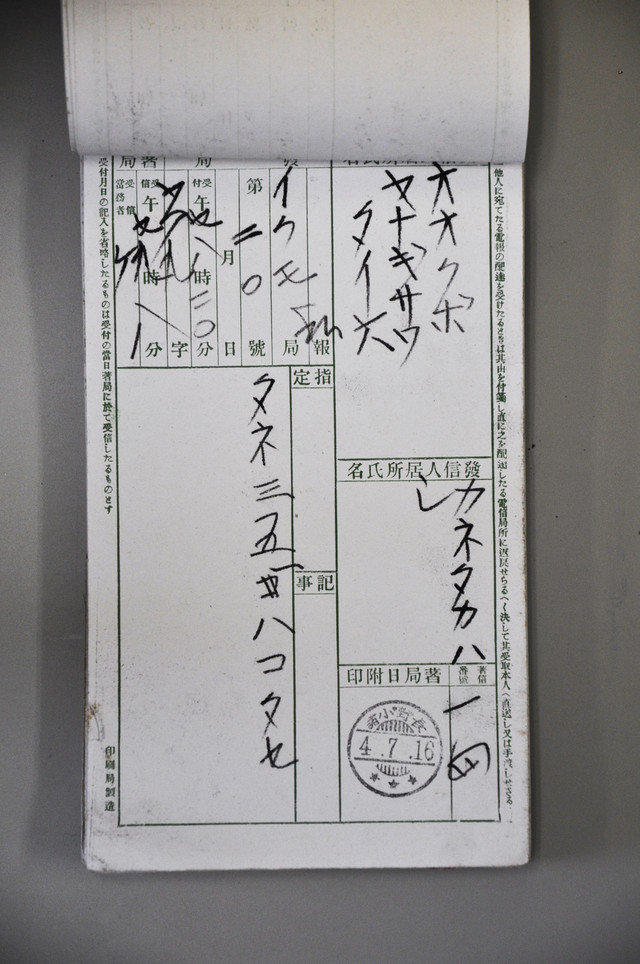 他人に宛てたる電報の配達を受けたるときは其由を付箋し直に之を配達したる電信局所に返戻せらるへく決して其受取本人へ直送し又は手渡しせさる
オオクボ
ヤナギサワ
タイ六
發信人居所氏名
カネタカハシ
著信番號
一四
著局日附印
長野小諸
4.7.16
報
イクモ
局
第二〇號
月 日
受付午 八時三〇分
字
受信午 時 分
受信當務者
指定
記事
タネ三五 ハコタセ
受付月日の記入を省略したるものは受付の當日著局に於て受信したるものとす
印刷局製造